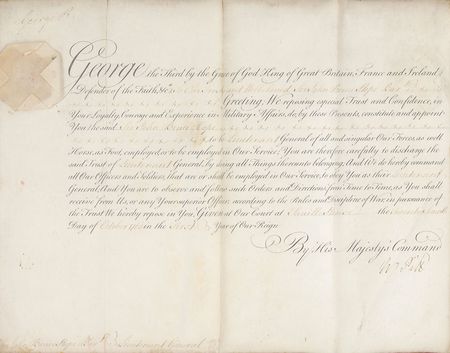 George R
George the Third by the Grace of God King of Great Britain, France and Ireland,
Defender of the Faith, &c. To Our Trusty and Welbeloved Sir John Bruce Hope
Greeting, We reposing especial Trust and Confidence, in
Your Loyalty, Courage and Experience in Military Affairs, do, by these Presents, constitute and appoint
You the said Sir John Bruce Hope
to be Lieutenant General of all and singular Our Forces, as well
Horse, as Foot, employed, or to be employed in Our Service; You are therefore carefully to discharge the
said Trust of Lieutenant General, by doing all Things thereunto belonging, And We do hereby command
all Our Officers and Soldiers, that are or shall be employed in Our Service, to obey You as their Lieutenant
General, And You are to observe and follow such Orders and Directions from Time to Time, as You shall
receive from Us, or any Your superior Officer according to the Rules and Discipline of War, in pursuance of
the Trust We hereby repose in You, Given at Our Court at the
Day of October in the First Year of Our Reign.
By His Majesty's Command
W Pitt
Sir John Bruce Hope Lieutenant General